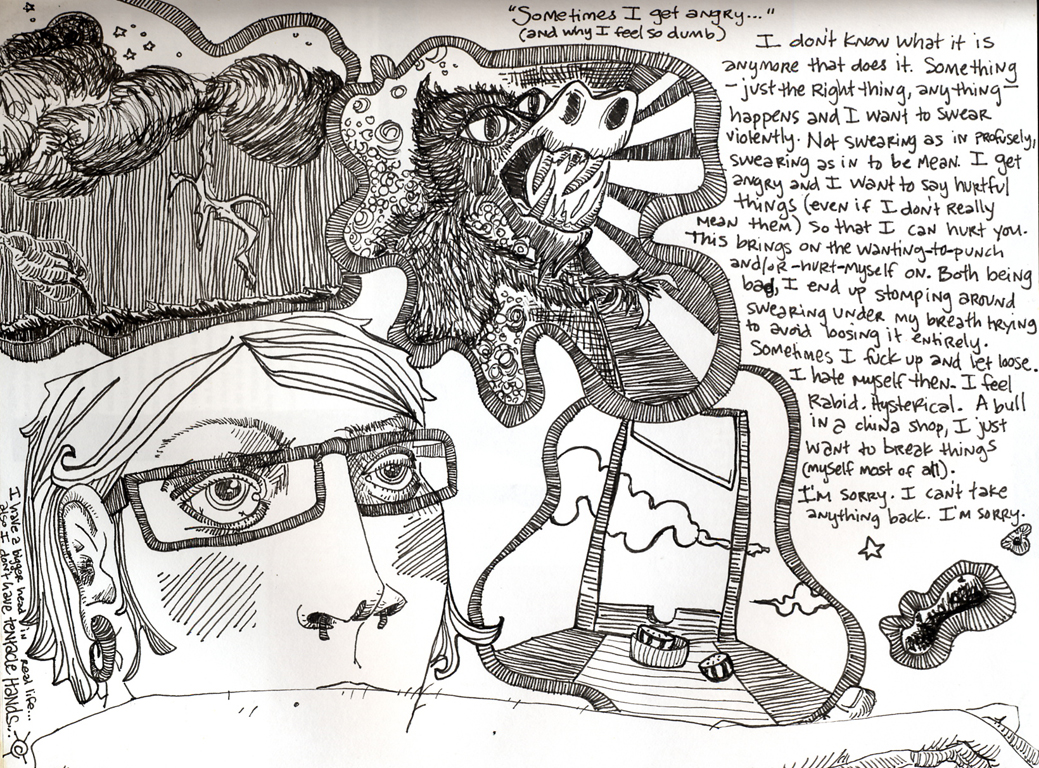 "Sometimes I get angry..."
(and why I feel so dumb)
I don't know what it is
anymore that does it. Something
-just the Right thing, anything-
happens and I want to swear
violently. Not swearing as in profusely,
swearing as in to be mean. I get
angry and I want to say hurtful
things (even if I don't Really
mean them) so that I can hurt you.
This brings on the wanting-to-punch
and/or-hurt-myself on. Both being
bad, I end up stomping around
swearing under my breath trying
to avoid loosing it entirely.
Sometimes I fuck up and let loose.
I hate myself then. I feel
Rabid. Hysterical. A bull
in a china shop, I just
want to break things
(myself most of all).
I'm sorry. I can't take
anything back. I'm sorry.
I have a bigger head in real life...
also I don't have tentacle hands...